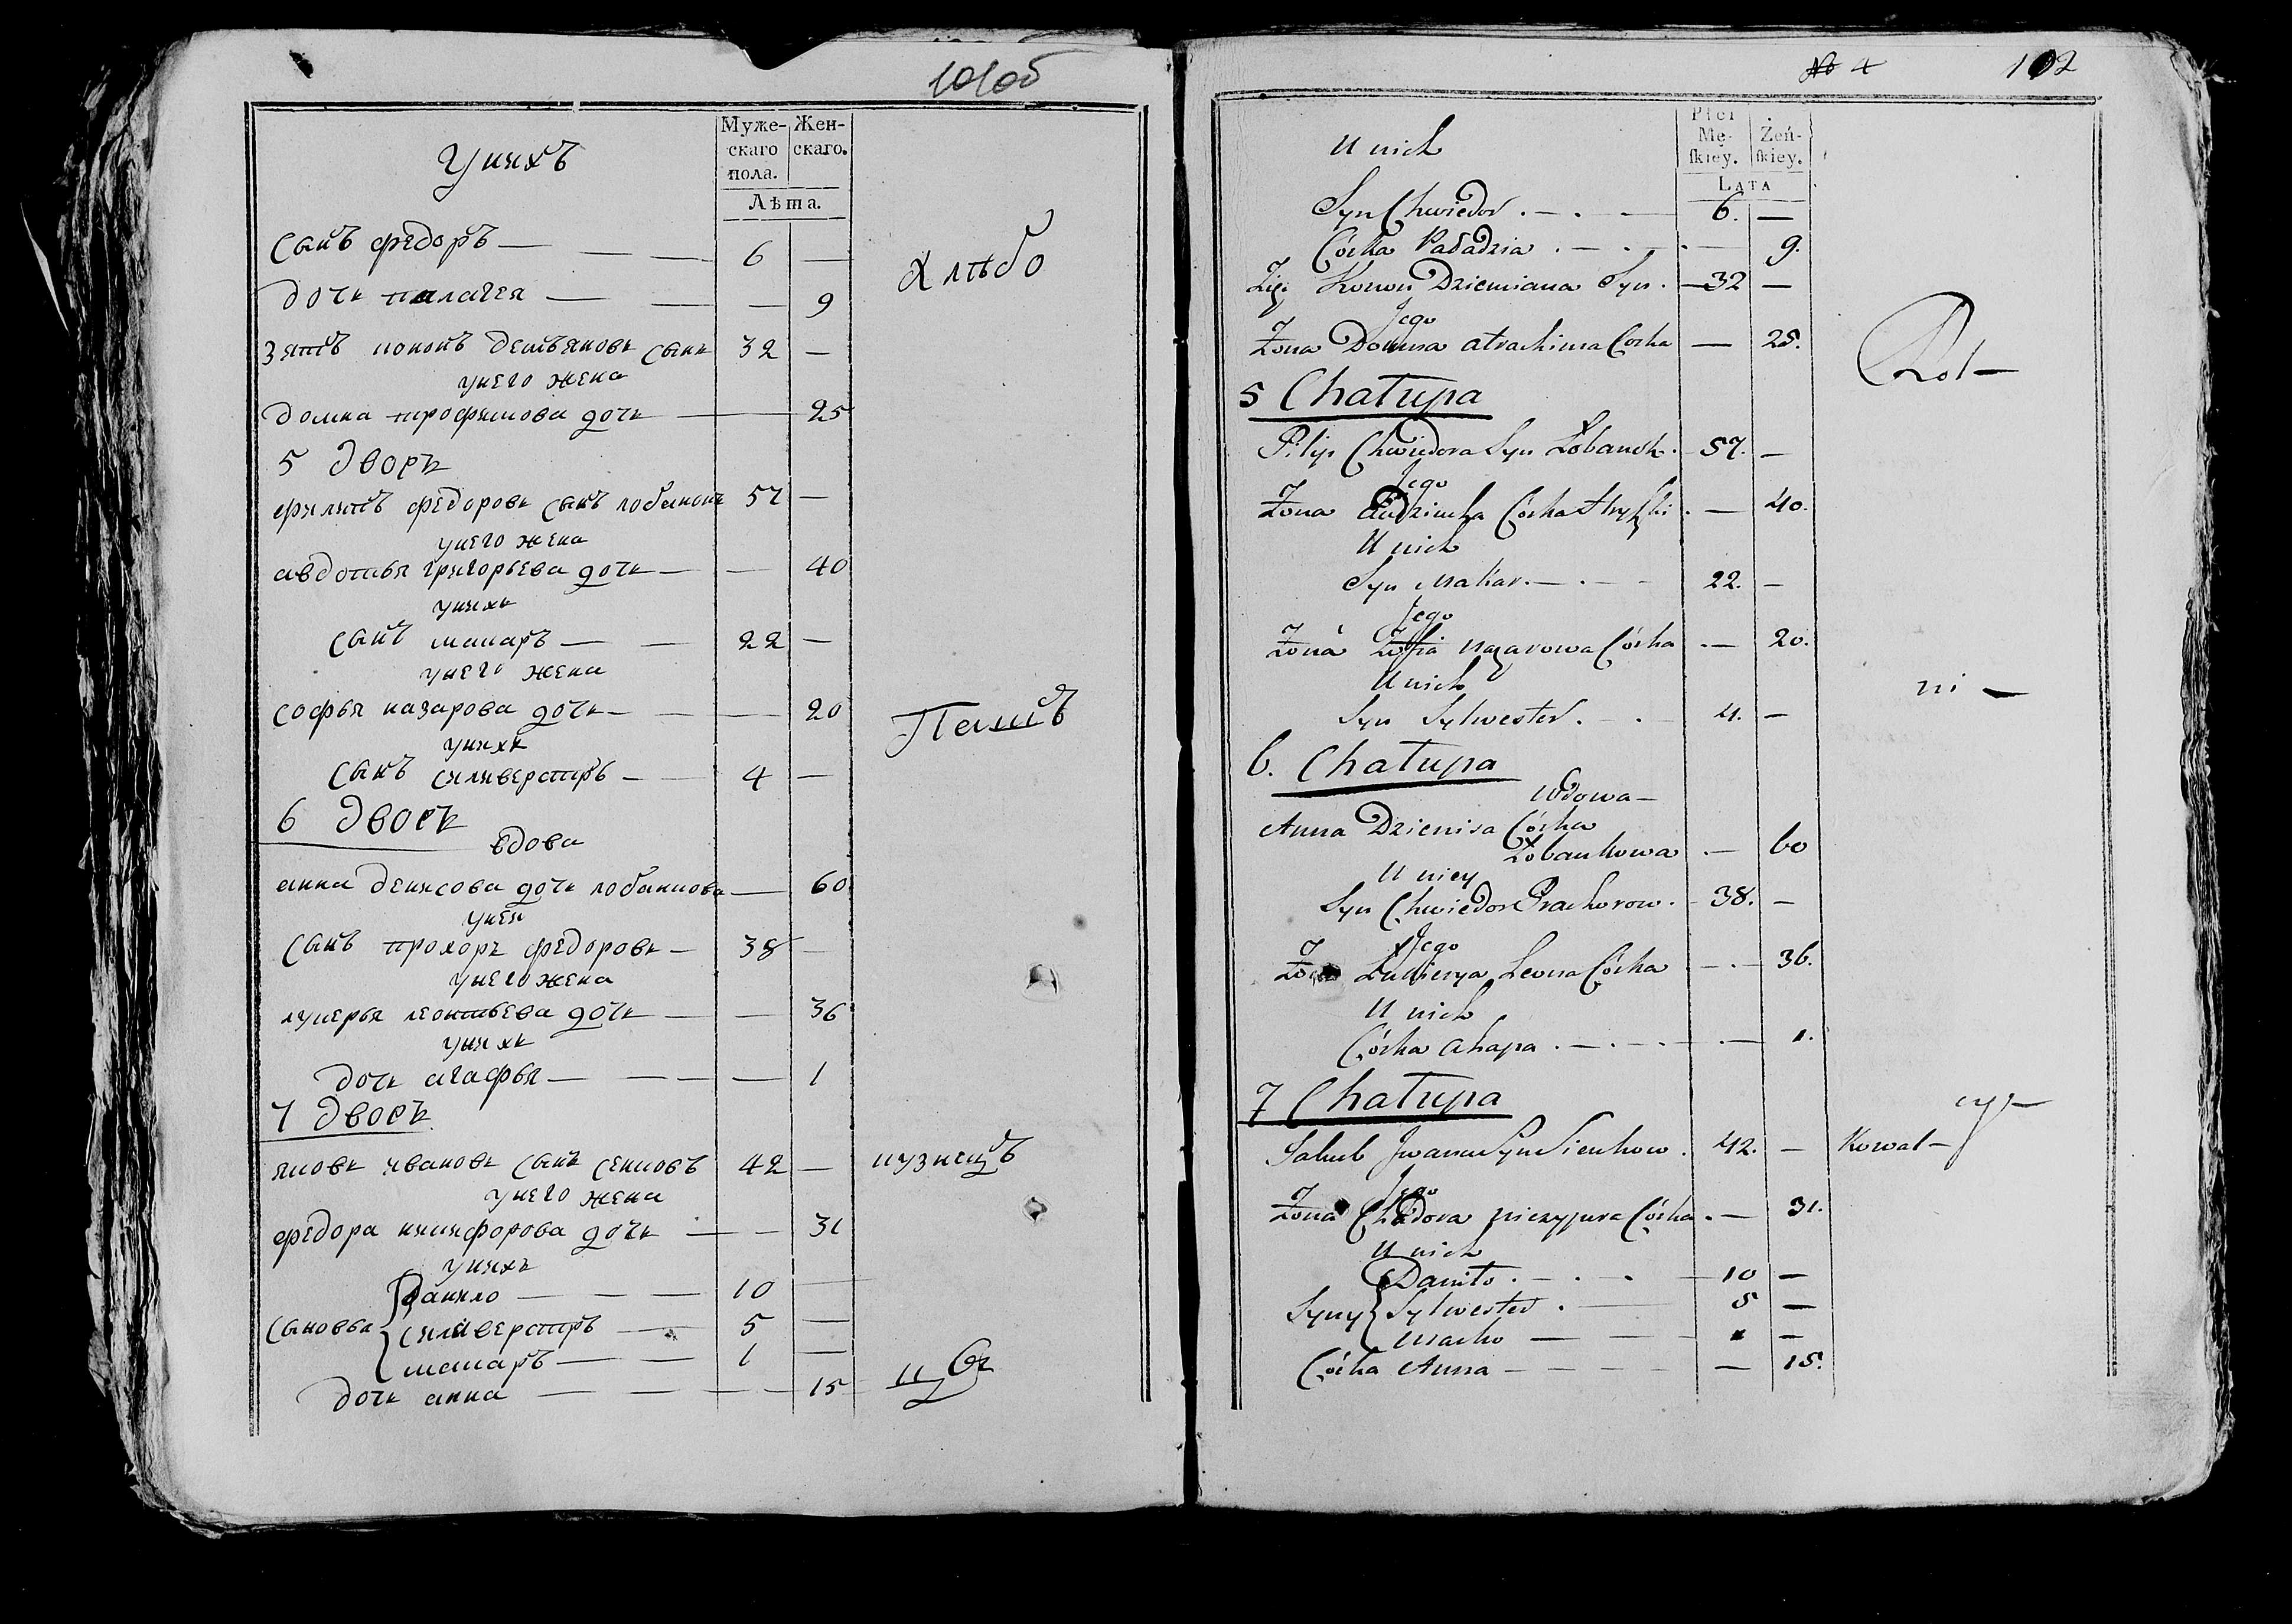 101об
Муже-
скаго
пола.
Жен-
скаго.
Лѣта.
У нихъ
Сынъ федоръ — 6 —
дочь палагея — 9
Хлѣбо
Зять кононъ демьяновъ сынъ 32 —
у него жена
домна трофимова дочь — 25
5 дворъ
филипъ федоровъ сынъ лобанокъ 57 —
у него жена
авдотья григорьева дочь — 40
у нихъ
сынъ макаръ — 22 —
у него жена
софья назарова дочь — 20
Пашъ
у нихъ
сынъ силиверстръ — 4 —
6 дворъ
вдова
анна денисова дочь лобанкова — 60
у нея
сынъ прохоръ федоровъ — 38 —
у него жена
лукерья леонтьева дочь — 36
у нихъ
дочь агафья — 1
7 дворъ
яковъ ивановъ сынъ сенковъ 42 — кузнецъ
у него жена
федора никифорова дочь — 31
у нихъ
данило — 10 —
сыновья силиверстръ — 5 —
макаръ — 1 —
дочь анна — 15
цы
№ 4 102
Płci
Mę-
skiey.
Żeń-
skiey.
Lata
U nich
Syn Chwiedor . — . — 6. —
Córka Paładzia . — . — 9.
Zięć Konon Dziemiana Syn . — 32 —
Jego
Żona Domna atrachima Corka — 25.
Rol —
5 Chałupa
Filip Chwiedora Syn Łobanok . 57. —
Jego
Żona Audziucha Córka Hryszki . — 40.
U nich
Syn Makar . — . — 22. —
Jego
Żona Zofia Nazarowa Córka . — 20.
U nich
ni —
Syn Sylwester . — . 4. —
6. Chałupa
Wdowa —
Anna Dzienisa Córka
Łobankowa . — 60
U niey
Syn Chwiedor Prachorow . 38. —
Jego
Żona Łukierya Leona Córka — . — 36.
U nich
Córka Ahapa . — . — . — 1.
7 Chałupa
cy —
Jakub Jwana Syn Sienkow . 42. — Kowal —
Jego
Żona Chwiedora Niczypura Córka . — 31.
U nich
Daniło . — . — 10 —
Syny Sylwester . — 5 —
Marko — 1 —
Córka Anna — — 15.